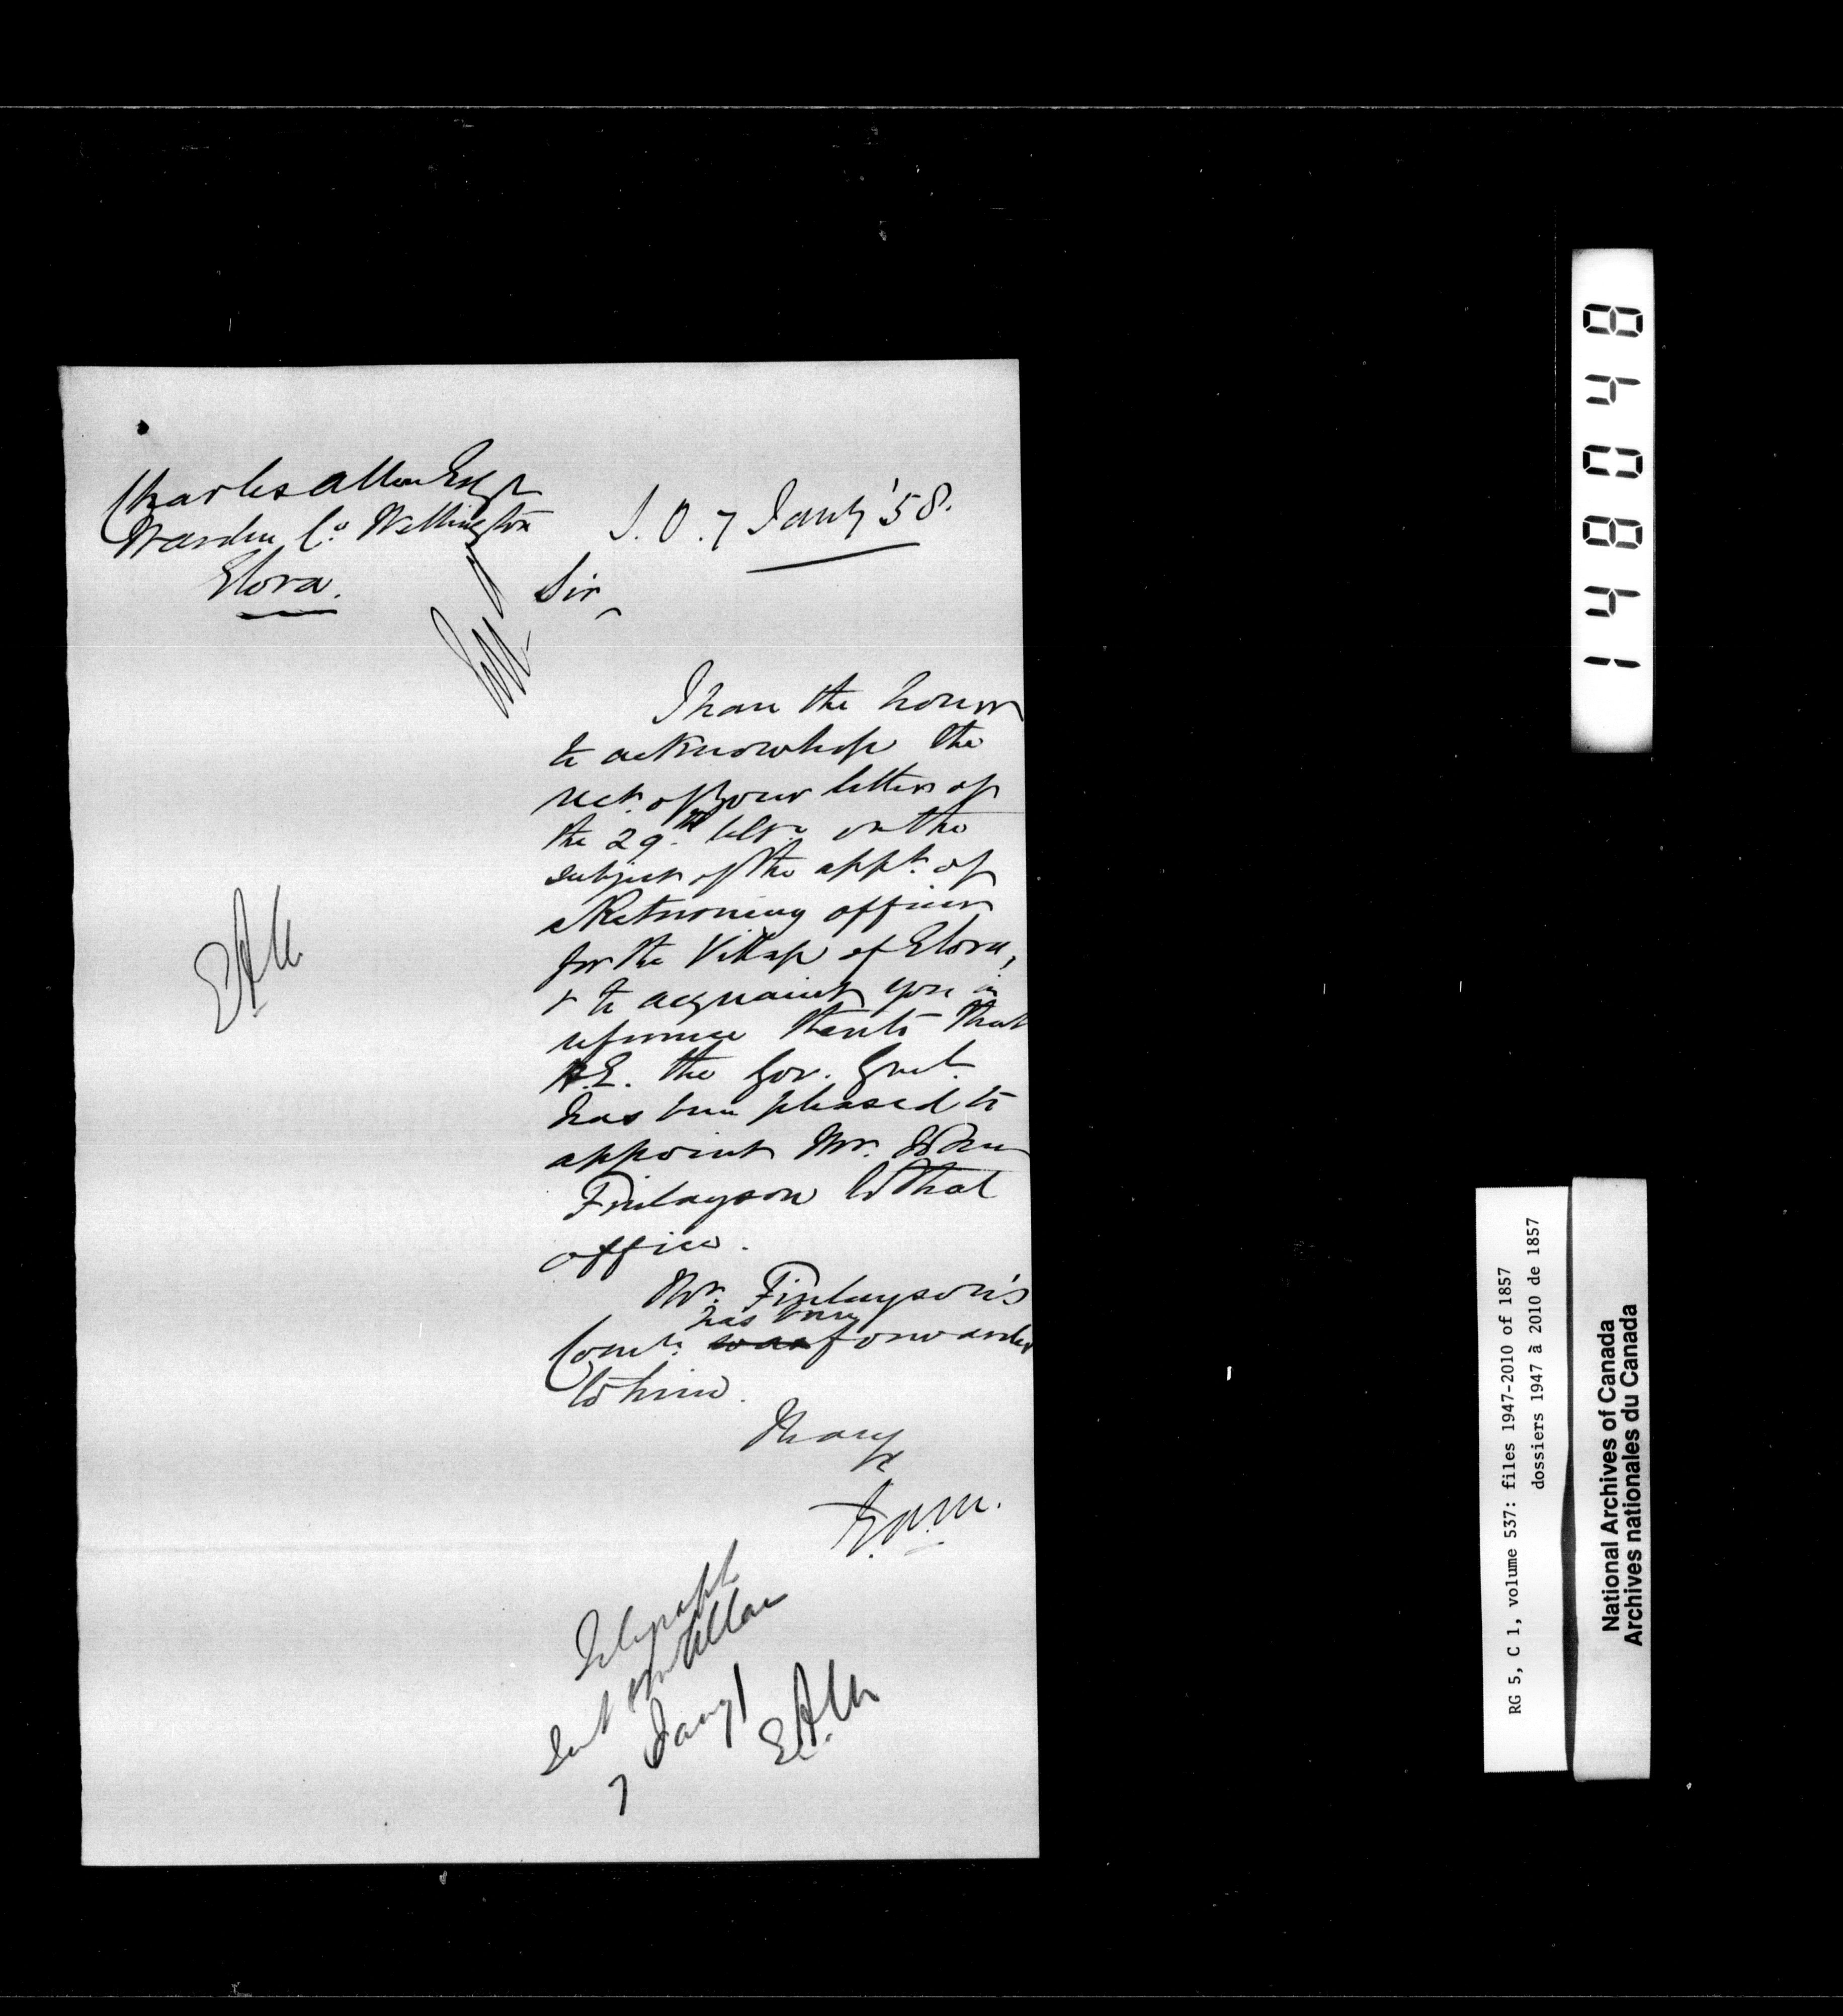 Charles Allan Esqr
Warden Co. Wellington
Elora.
S.O. 7 Jany '58.
Sir,
I have the honor
to acknowledge the
rect. of your letter of
the 29th ulto. on the
subject of the appt. of
a Returning officer
for the Village of Elora,
& to acquaint you in
reference thereto that
H.E. the Gov. Genl.
has been pleased to
appoint Mr.
Finlayson to that
office.
Mr. Finlayson's
has been
Comn. was forwarded
to him.
I have
&c
E.A.M.
EAM
Telegraph
sent Mr Allan
7 Jany
E.A.M
148048
RG 5, C 1, volume 537: files 1947-2010 of 1857
dossiers 1947 à 2010 de 1857
National Archives of Canada
Archives nationales du Canada